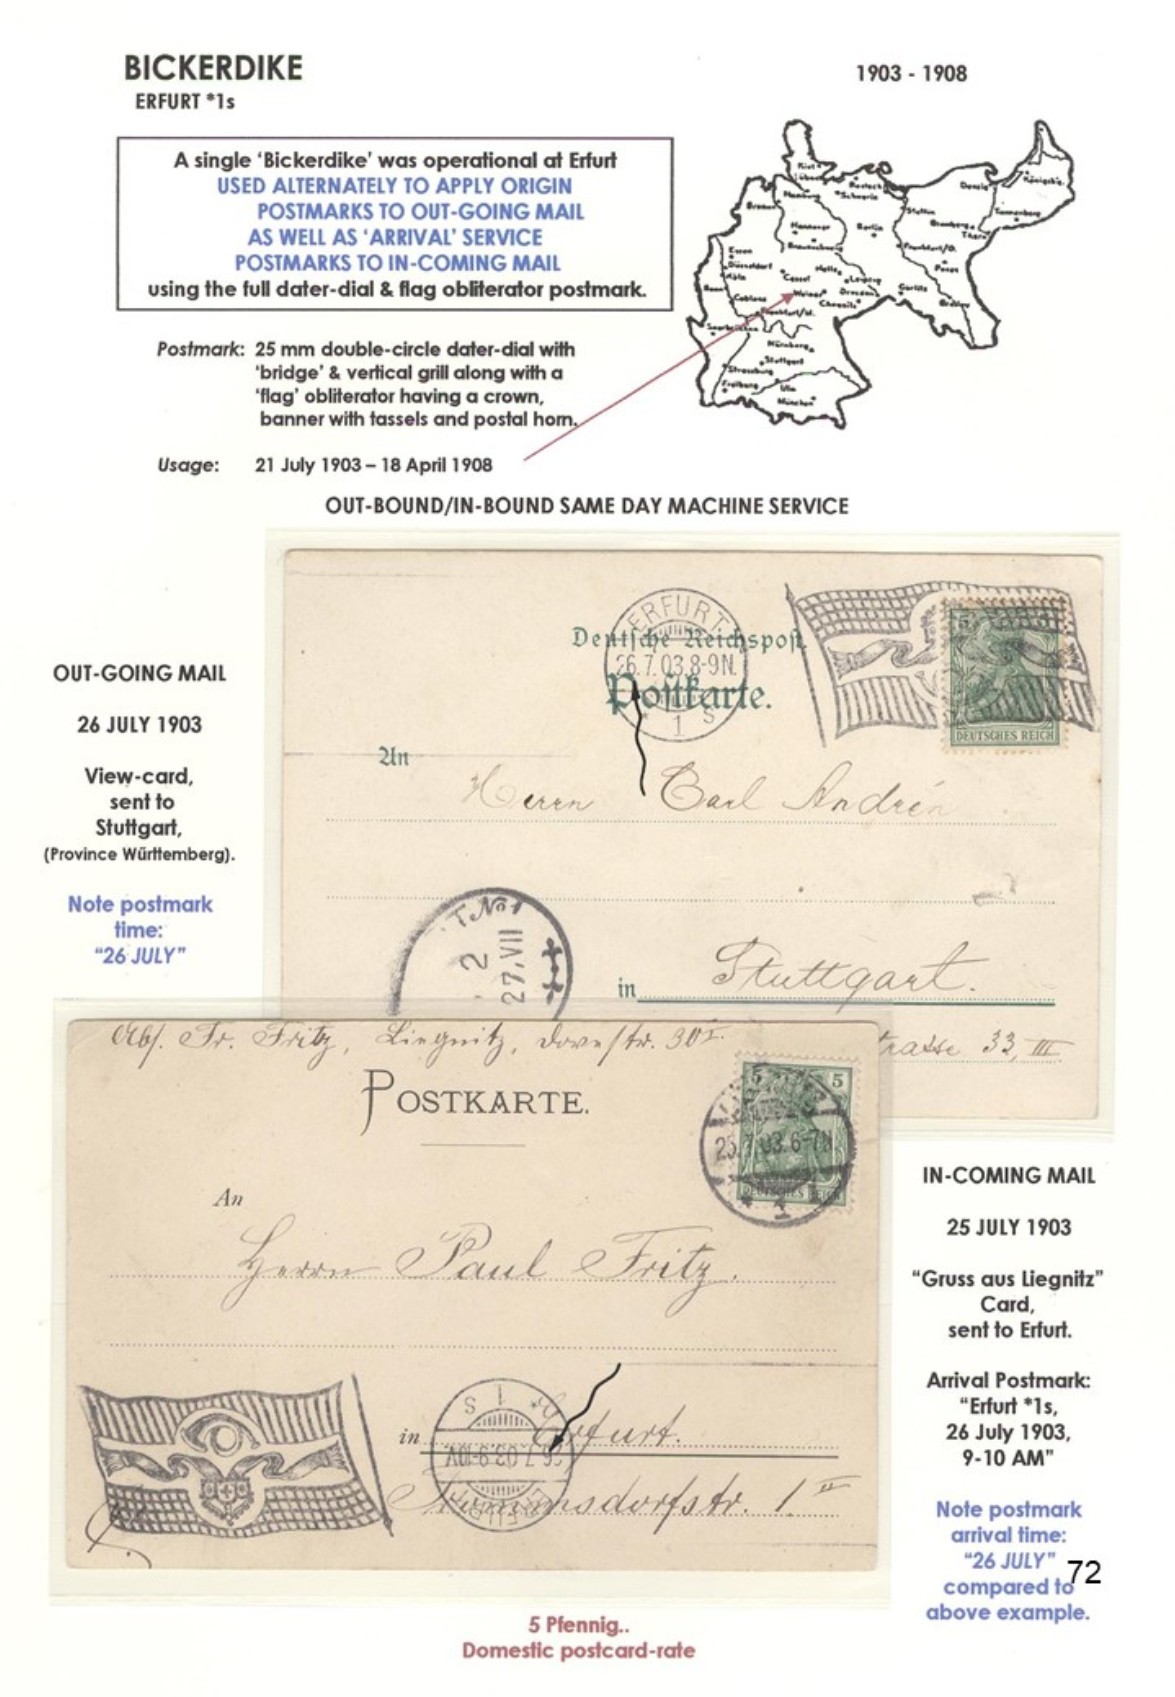 BICKERDIKE
ERFURT *1s
1903 - 1908
A single ‘Bickerdike’ was operational at Erfurt
USED ALTERNATELY TO APPLY ORIGIN
POSTMARKS TO OUT-GOING MAIL
AS WELL AS ‘ARRIVAL’ SERVICE
POSTMARKS TO IN-COMING MAIL
using the full dater-dial & flag obliterator postmark.
Kiel
Lübeck
Hamburg
Rostock
Schwerin
Danzig
Königsbg.
Bremen
Stettin
Tannenberg
Bromberg
Thorn
Hannover
Berlin
Braunschweig
Frankfurt/O.
Posen
Essen
Düsseldorf
Köln
Cassel
Halle
Leipzig
Bonn
Coblenz
Weimar
Dresden
Chemnitz
Görlitz
Breslau
Frankfurt/M.
Saarbrücken
Nürnberg
Stuttgart
Strassburg
Freiburg
Ulm
München
Postmark: 25 mm double-circle dater-dial with
‘bridge’ & vertical grill along with a
‘flag’ obliterator having a crown,
banner with tassels and postal horn.
Usage: 21 July 1903 – 18 April 1908
OUT-BOUND/IN-BOUND SAME DAY MACHINE SERVICE
OUT-GOING MAIL
26 JULY 1903
View-card,
sent to
Stuttgart,
(Province Württemberg).
Note postmark
time:
“26 JULY”
ERFURT
26.7.03.8-9N.
* 1 S
Deutsche Reichspost
Postkarte.
5
DEUTSCHES REICH
An
Herrn Carl Andrén
T. No 1
2
27.VII
in Stuttgart.
trasse 33, III
Abs. Fr. Fritz, Liegnitz, Dovestr. 30 I.
POSTKARTE.
5 5
25.7.03.6-7N
* 1
DEUTSCHES REICH
An
Herrn Paul Fritz.
in Erfurt.
* 1 S
26.7.03.9-10V.
ERFURT
1 II
IN-COMING MAIL
25 JULY 1903
“Gruss aus Liegnitz”
Card,
sent to Erfurt.
Arrival Postmark:
“Erfurt *1s,
26 July 1903,
9-10 AM”
Note postmark
arrival time:
“26 JULY”
compared to
above example.
72
5 Pfennig..
Domestic postcard-rate